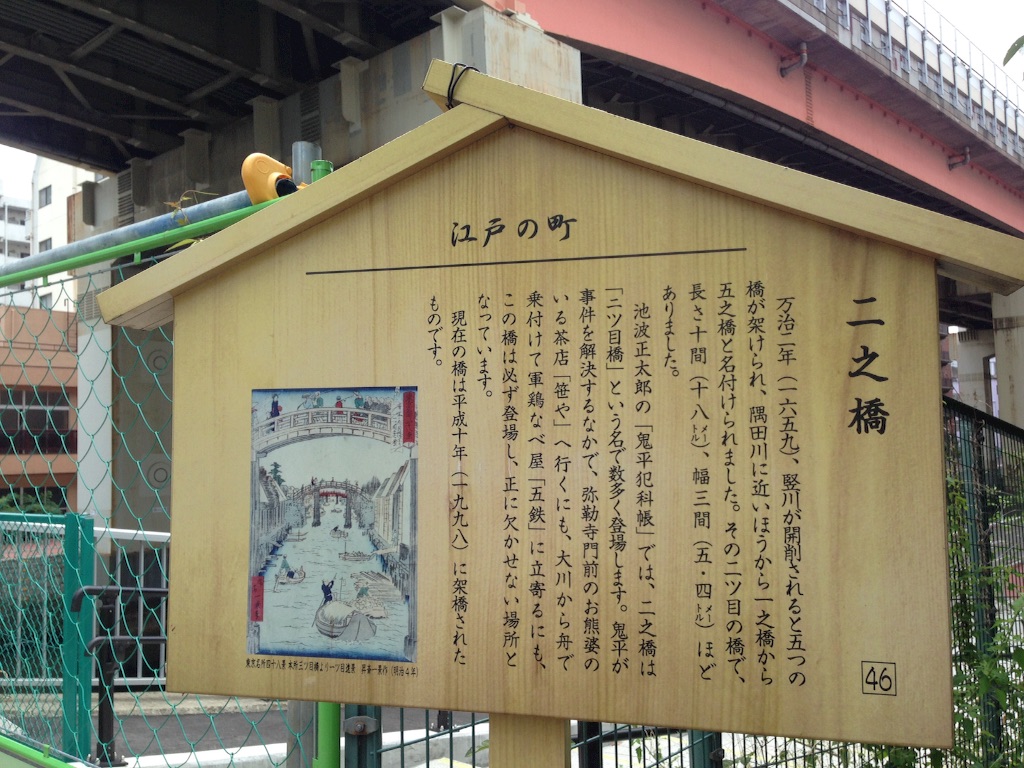 江戸の町
二之橋
万治二年（一六五九）、竪川が開削されると五つの
橋が架けられ、隅田川に近いほうから一之橋から
五之橋と名付けられました。その二ツ目の橋で、
長さ十間（十八メートル）、幅三間（五・四メートル）ほど
ありました。
池波正太郎の「鬼平犯科帳」では、二之橋は
「二ツ目橋」という名で数多く登場します。鬼平が
事件を解決するなかで、弥勒寺門前のお熊婆の
いる茶店「笹や」へ行くにも、大川から舟で
乗付けて軍鶏なべ屋「五鉄」に立寄るにも、
この橋は必ず登場し、正に欠かせない場所と
なっています。
現在の橋は平成十年（一九九八）に架橋された
ものです。
東京名所四十八景 本所三ツ目橋より一ツ目遠景 昇斎一景作（明治4年）
46